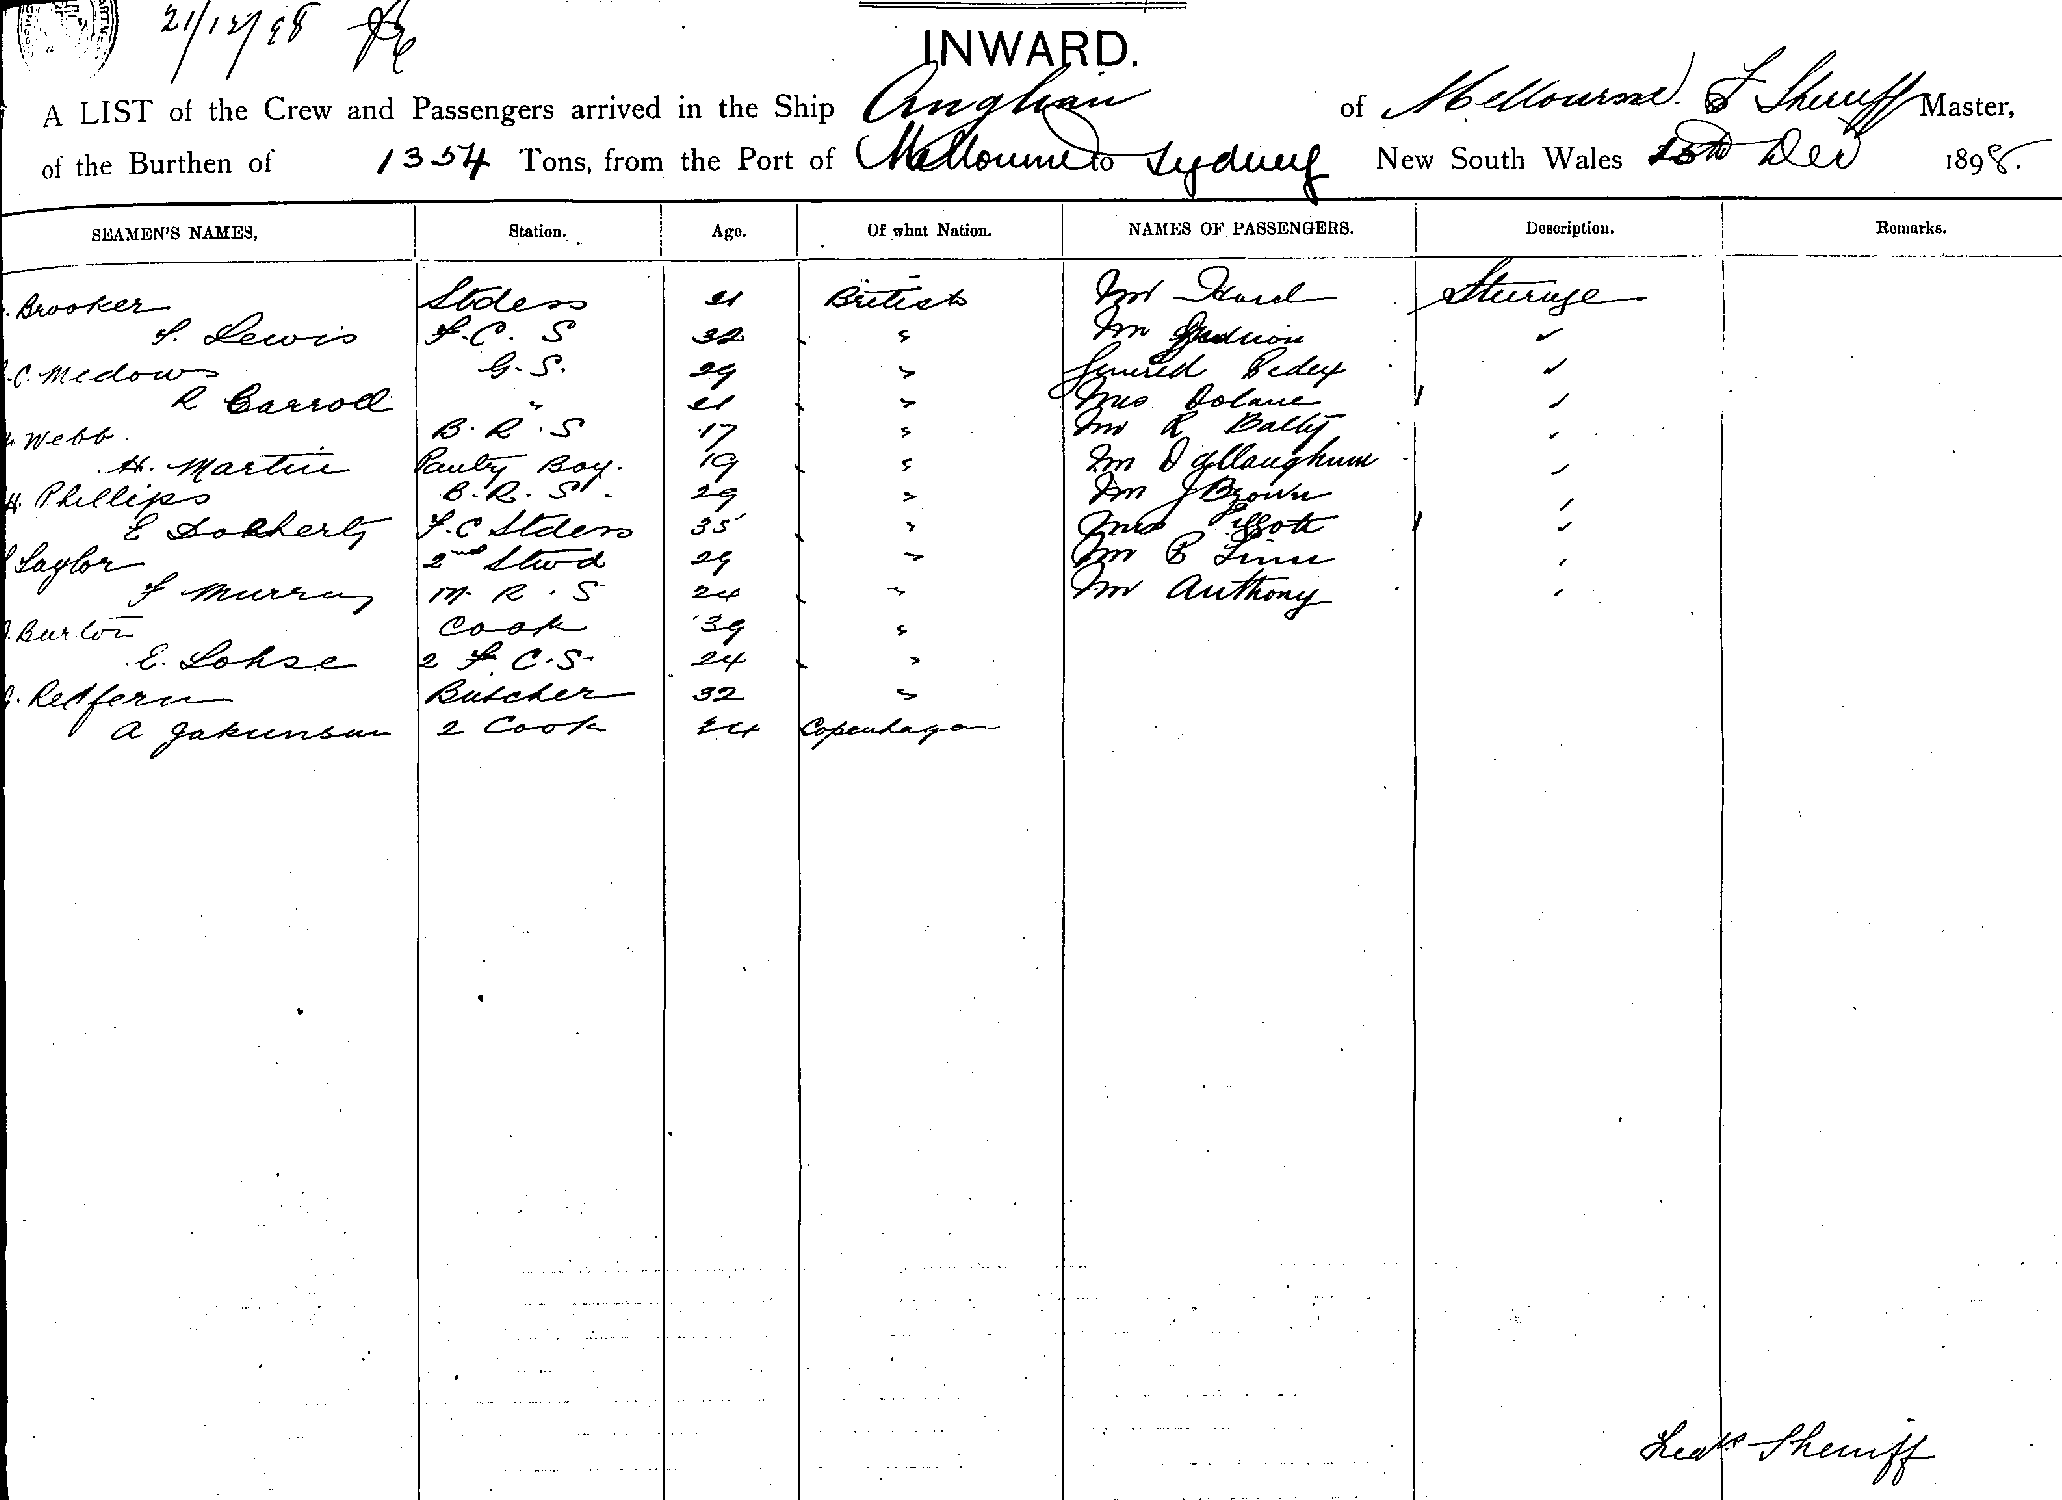 21/12/98
INWARD.
A LIST of the Crew and Passengers arrived in the Ship Anglian of Melbourne. F Sherriff Master,
of the Burthen of 1354 Tons, from the Port of Melbourne to Sydney New South Wales Dec 1898.
SEAMEN'S NAMES, Station. Age. Of what Nation. NAMES OF PASSENGERS. Description. Remarks.
Brooker Stdess 21 British Mr Hurd Steerage
Lewis F.C. S 32 " Mr
C. Medows G.S. 29 "
R Carroll " 21 " Mrs
Webb B.R.S 17 " Mr R Balty
H. Martin Pantry Boy. 19 " Mr
H Phillips B.R.S. 29 " Mr J Brown
E Dockerty F.C Stdess 35 " Mrs
Taylor 2nd Stwd 29 " Mr
F Murray M.R.S 24 " Mr Anthony
Burton Cook 39 "
E. Lohse 2 F.C.S. 24 "
Redfern Butcher 32 "
A 2 Cook 24 Copenhagen
Sherriff